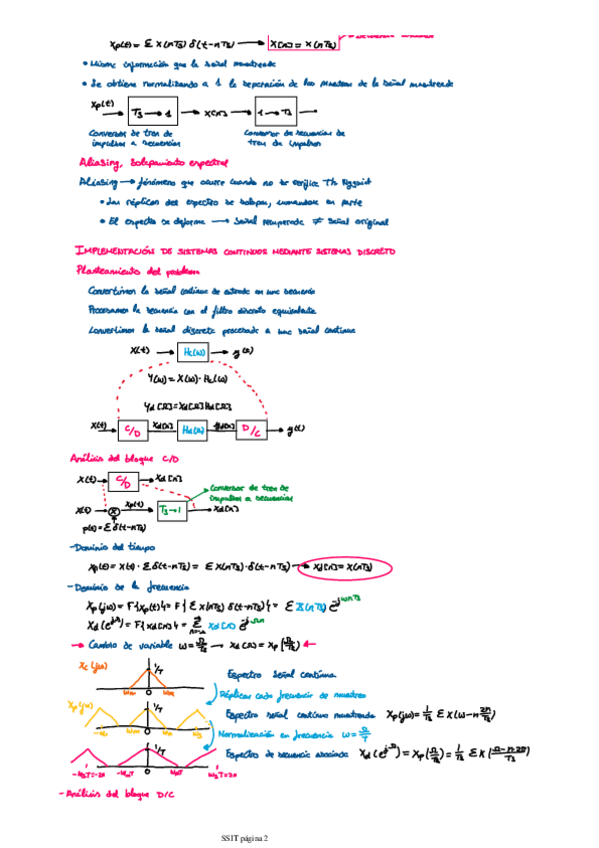 xp(t) = Σ x(nTs) δ(t-nTs) → x[n] = x(nTs)
• Misma información que la señal muestreada
• Se obtiene normalizando a 1 la separación de las muestras de la señal muestreada
xp(t) → Ts→1 → x[n] 1→Ts →
Conversor de tren de impulsos a secuencias
Conversor de secuencias de tren de impulsos
Aliasing, Solapamiento espectral
Aliasing → fenómeno que ocurre cuando no se verifica Th Nyquist
• Las réplicas del espectro se solapan, sumandose en parte
• El espectro se deforma → Señal recuperada ≠ Señal original
IMPLEMENTACIÓN DE SISTEMAS CONTINUOS MEDIANTE SISTEMAS DISCRETO
Planteamiento del problem
Convertimos la señal continua de entrada en una secuencia
Procesamos la secuencia con el filtro discreto equivalente
Convertimos la señal discreta procesada a una señal continua
x(t) → Hc(ω) → y(t)
Y(ω) = X(ω)·Hc(ω)
Yd[Ω] = Xd[Ω] Hd[Ω]
x(t) → C/D xd[n] Hd(Ω) yd[n] D/C → y(t)
Análisis del bloque C/D
x(t) → C/D → xd[n]
Conversor de tren de impulsos a secuencias
x(t) → ⊗ xp(t) → Ts→1 → xd[n]
p(t) = Σ δ(t-nTs)
-Dominio del tiempo
xp(t) = x(t) · Σ δ(t-nTs) = Σ x(nTs)·δ(t-nTs) → xd[n] = x(nTs)
-Dominio de la frecuencia
Xp(jω) = F{xp(t)} = F{Σ x(nTs) δ(t-nTs)} = Σ x(nTs) e^-jωnTs
Xd(e^jΩ) = F{xd[n]} = Σ xd[n] e^-jΩn
→ Cambio de variable ω = Ω/Ts → Xd(Ω) = Xp(Ω/Ts) ←
Xc(jω)
1/T
-ωM 0 ωM
Espectro señal continua
Réplicas cada frecuencia de muestreo
Xp(jω)
1/T
-ωs -ωM 0 ωM ωs
Espectro señal continua muestreada Xp(jω) = 1/Ts Σ X(ω-n 2π/Ts)
Normalización en frecuencia ω = Ω/T
1/T
-ωsT=-2π -ωMT 0 ωMT ωsT=2π
Espectro de secuencia asociada Xd(e^jΩ) = Xp(Ω/Ts) = 1/Ts Σ X((Ω-n·2π)/Ts)
-Análisis del bloque D/C
SSIT página 2